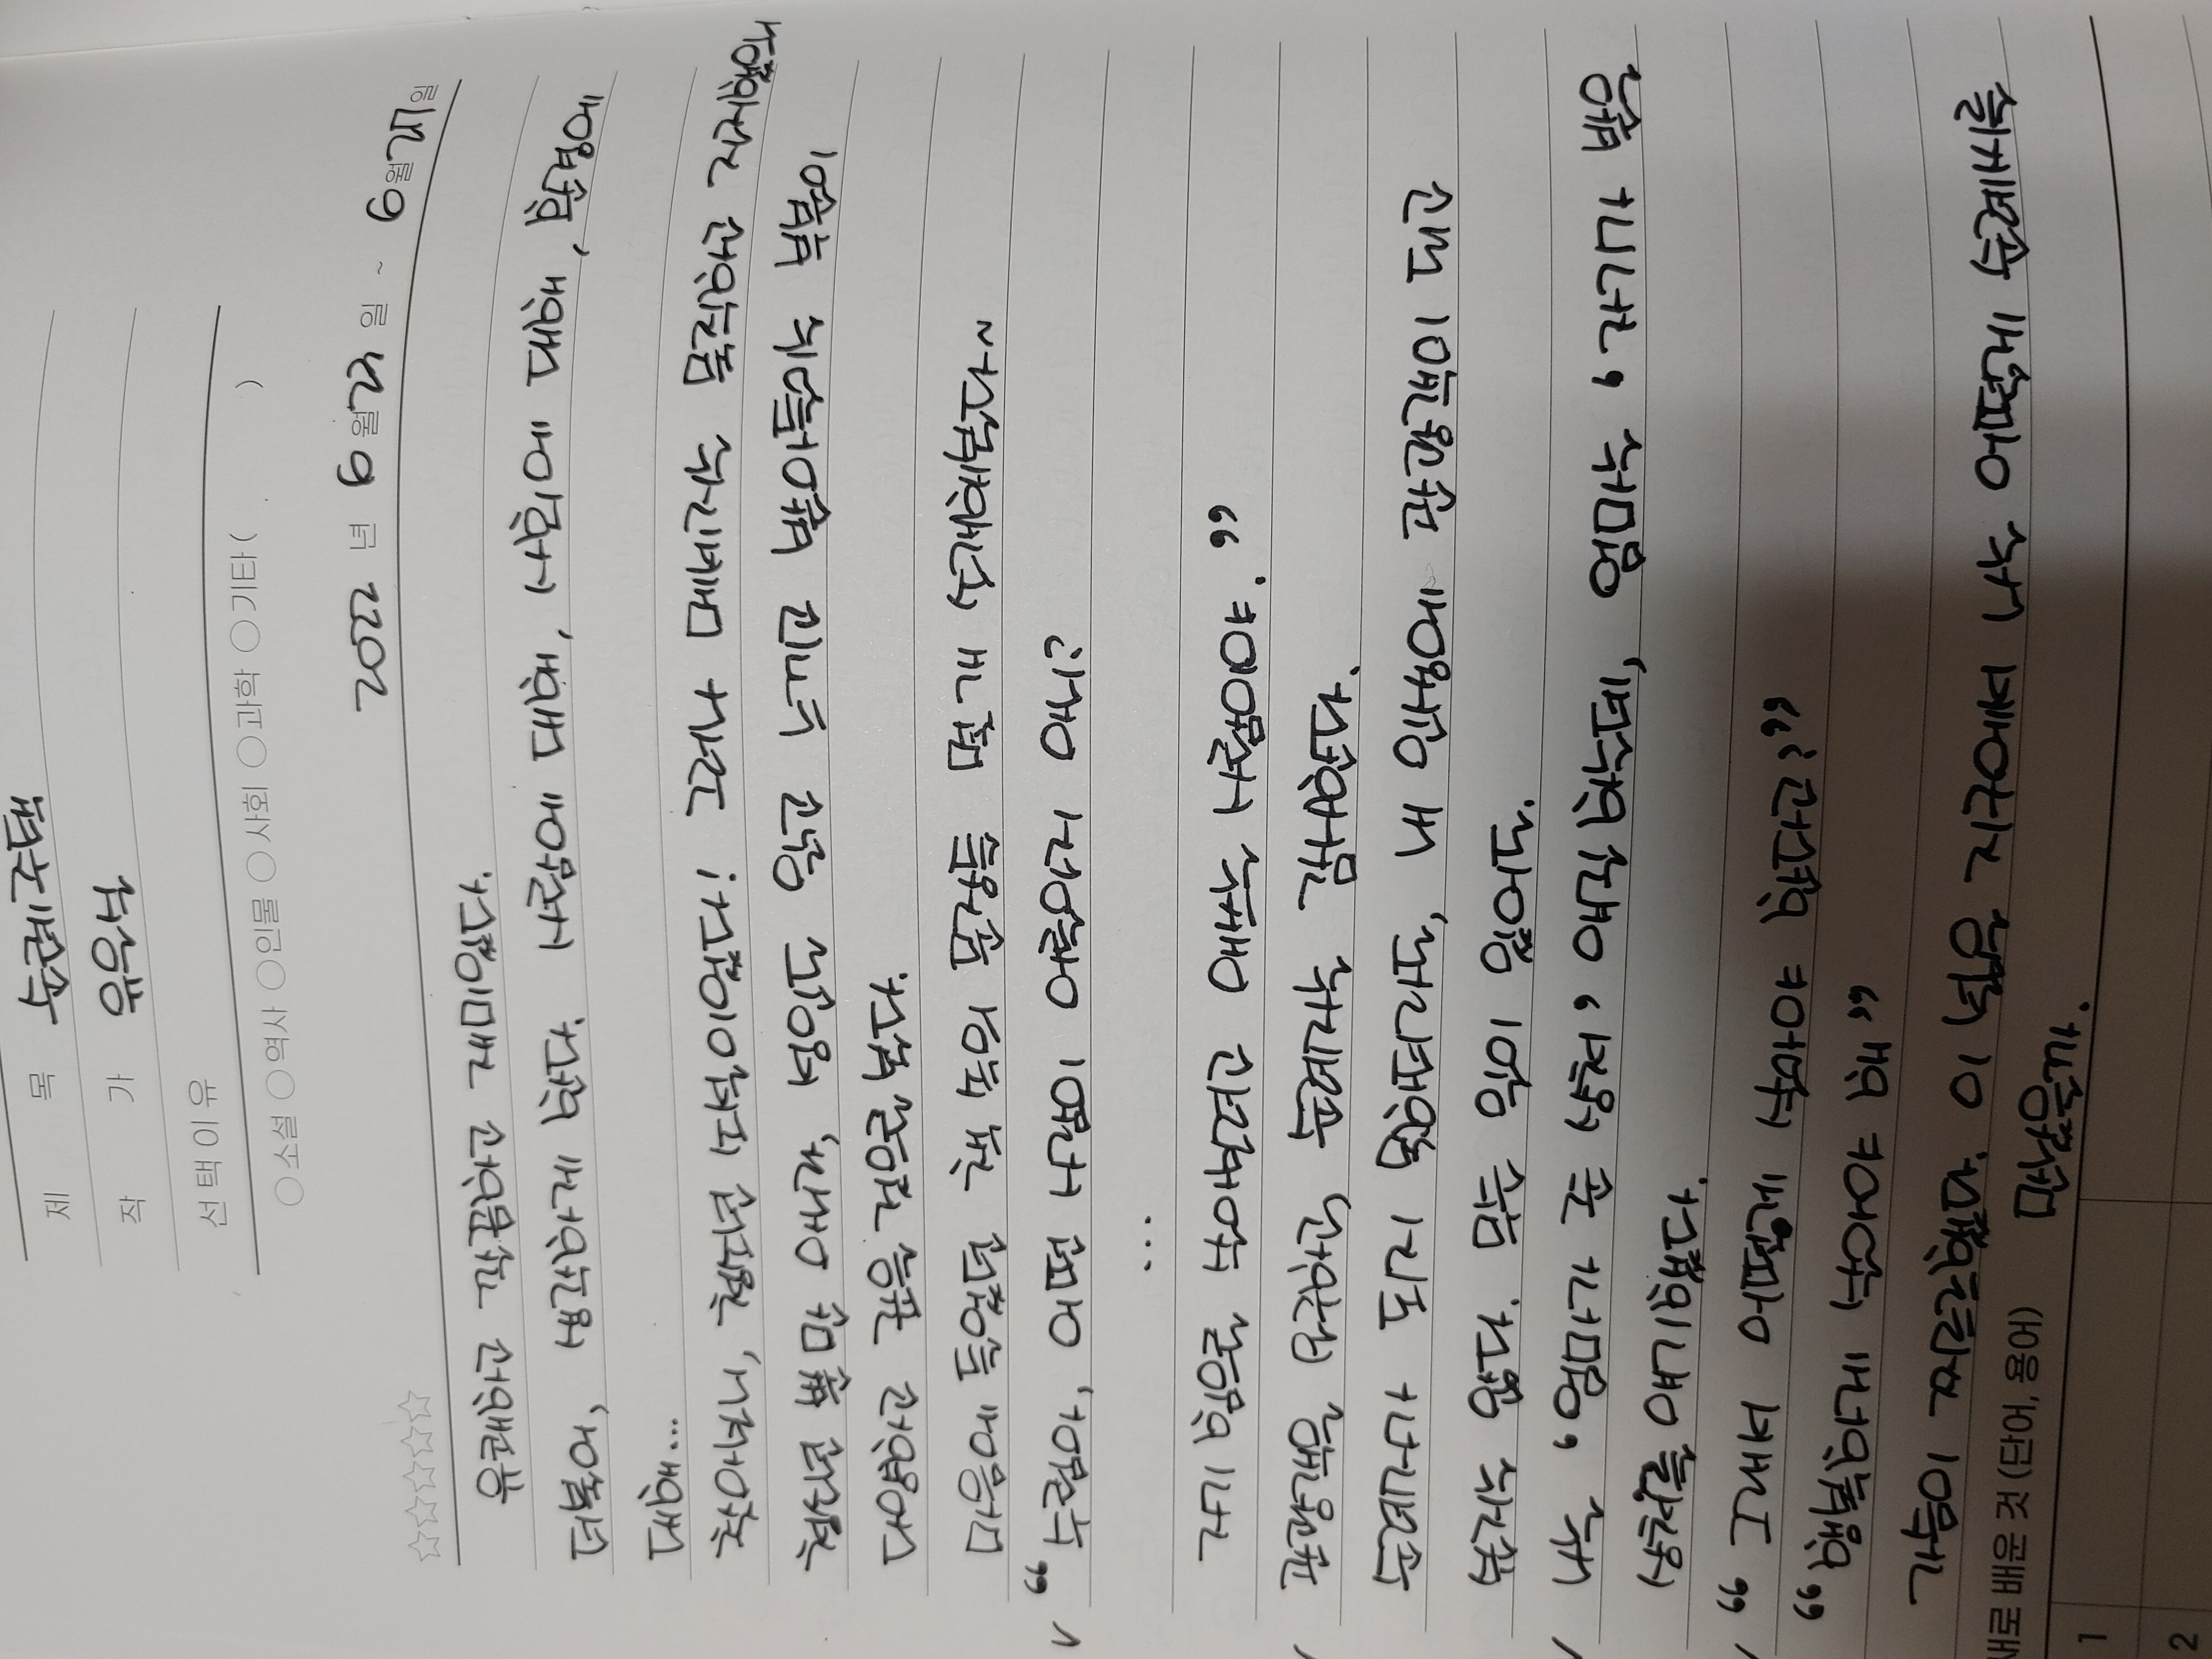 제 목 순례주택
작 가 유은실
선택이유
○소설 ○역사 ○인물 ○사회 ○과학 ○기타 ( )
2022 년 6 월 23 일 ~ 6 월 27 일
☆☆☆☆☆
유쾌하고 깔끔하고 재미있다.
더불어, 생각하게 한다. 사람에 대해, 사회에 대해, 환경에
대해...
찾아보니, 청소년 소설이었다! 그러나 메세지는 묵직하고 진지했으니
청소년 뿐만 아니라, 성인도 읽고 느끼고 받아들이는 부분이
다양하고 클을 것으로 본다.
마음에 들었던 책 속의 문장들 몇 개 소개해본다~
✓ “수림아, 어떤 사람이 어른인지 아니?
...
자기 힘으로 살아보려고 애쓰는 사람이야.”
✓ 관광객은 요구하고, 순례자는 감사한다.
순례자가 되지 못하더라도, 내 인생에 관광객이 되고
싶지는 않다. 무슨 일이 있어도.
✓ 나는 ‘엄마가 준 상처’ 얘길 하는데, 엄마는 ‘자기가 받은
상처’를 얘기했다.
✓ “그래서 어떻게 살아야 한다고?”
“행복하게 살아야 해”
가슴이 찌르르했다. 이 넓은 지구에서 나는 어떻게 순례씨를
만났을까.
새로 배운 것 (단어, 용어)
1
2